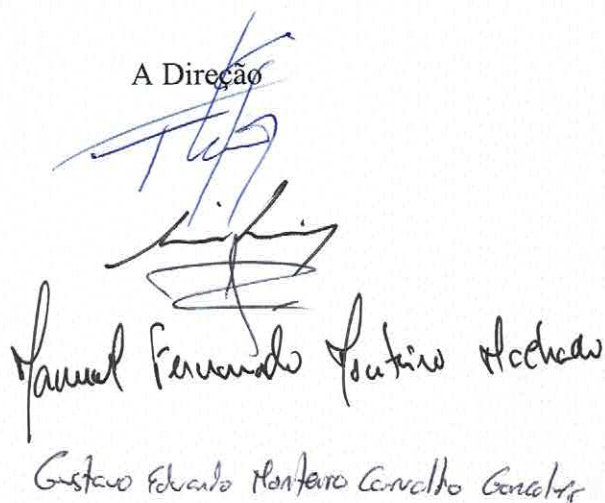 A Direção
Manuel Fernando Monteiro Machado
Gustavo Eduardo Monteiro Carvalho Gonçalves